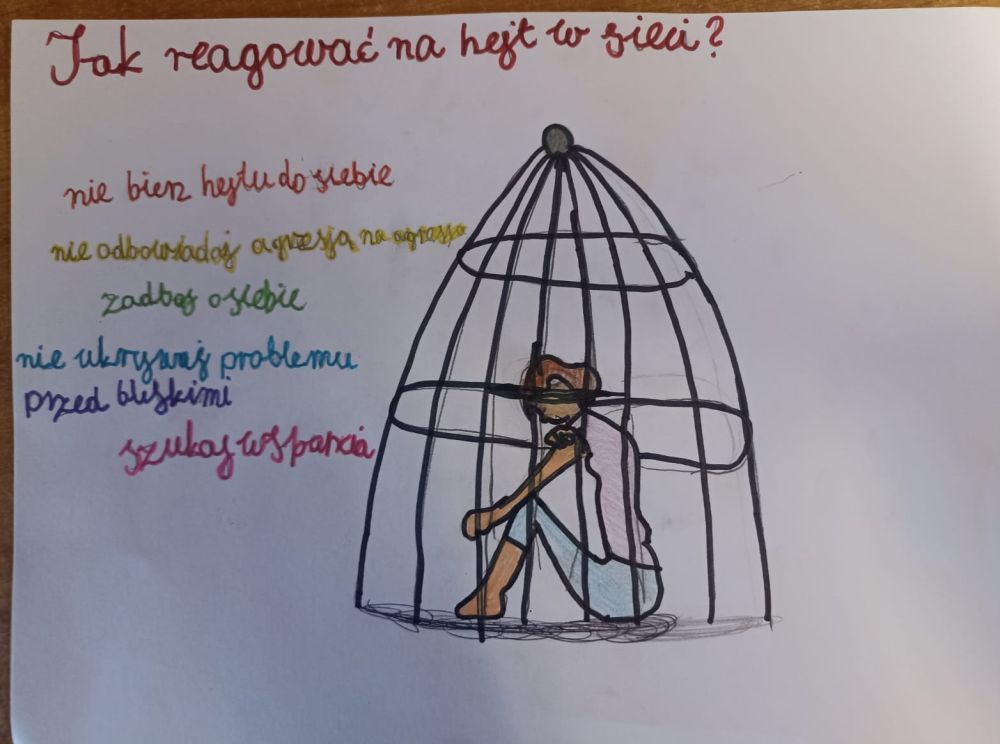 Jak reagować na hejt w sieci?
nie bierz hejtu do siebie
nie odpowiadaj agresją na agresję
zadbaj o siebie
nie ukrywaj problemu
przed bliskimi
szukaj wsparcia